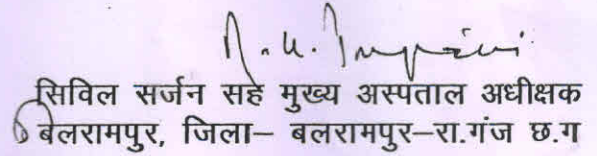 सिविल सर्जन सह मुख्य अस्पताल अधीक्षक
बलरामपुर, जिला– बलरामपुर–रा.गंज छ.ग